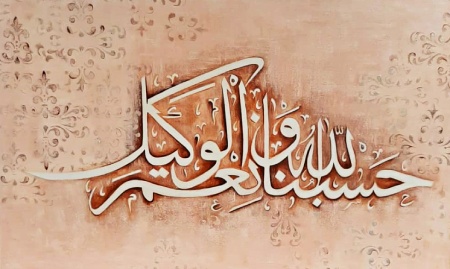 حَسْبُنَا اللّٰه وَنِعْمَ الْوَكِيل